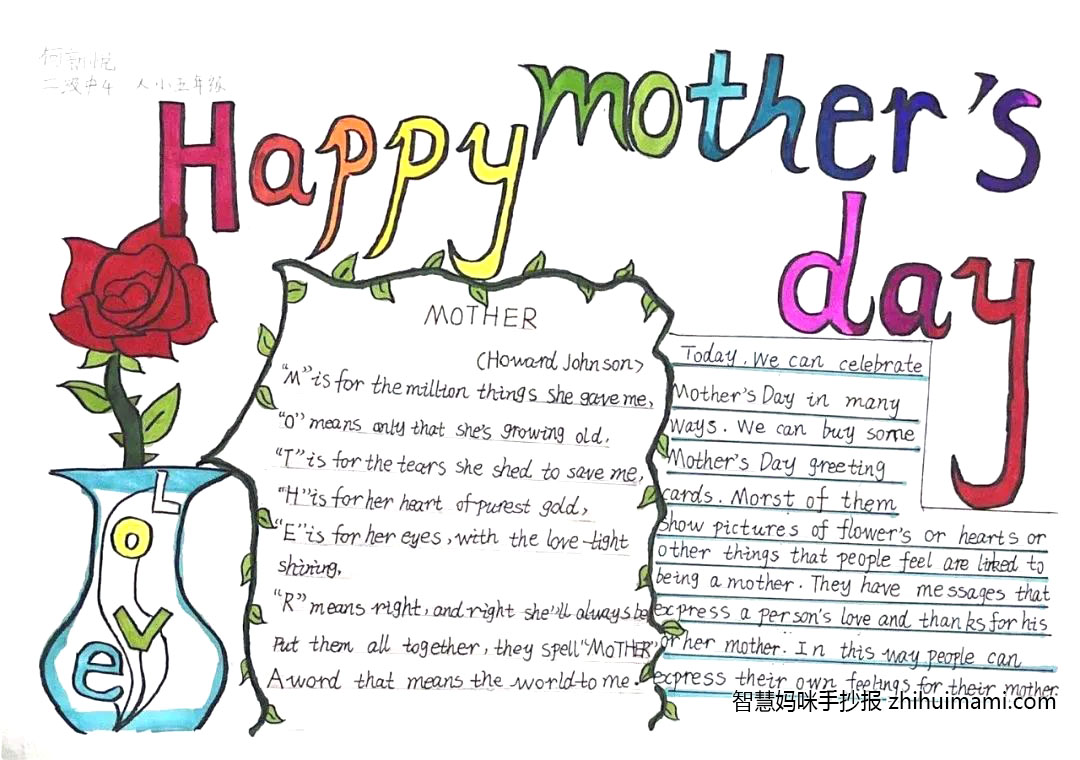 二级中4 人小五年级
Happy mother's
day
MOTHER
(Howard Johnson)
"M" is for the million things she gave me,
"O" means only that she's growing old,
"T" is for the tears she shed to save me,
"H" is for her heart of purest gold,
"E" is for her eyes, with the love-light
shining,
"R" means right, and right she'll always be
Put them all together, they spell "MOTHER"
A word that means the world to me.
Today. We can celebrate
Mother's Day in many
ways. We can buy some
Mother's Day greeting
cards. Morst of them
show pictures of flower's or hearts or
other things that people feel are linked to
being a mother. They have messages that
express a person's love and thanks for his
or her mother. In this way people can
express their own feelings for their mother.
L
o
v
e
智慧妈咪手抄报 zhihuimami.com